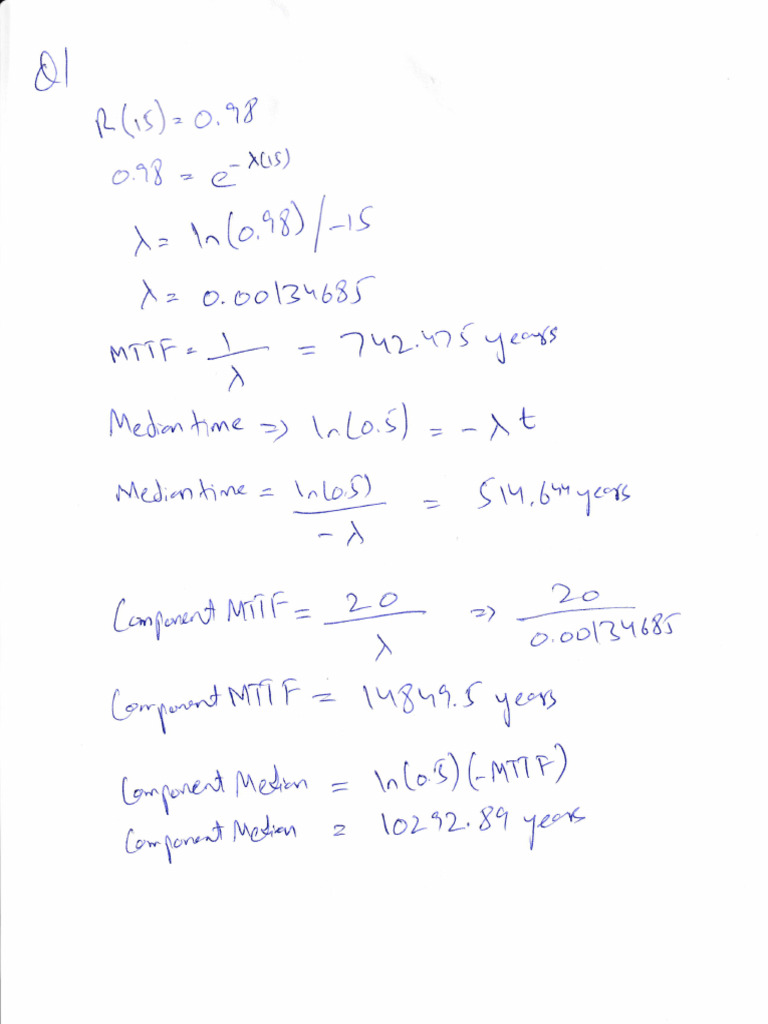 Q1
R(15) = 0.98
0.98 = e^-λ(15)
λ = ln(0.98)/-15
λ = 0.00134685
MTTF = 1/λ = 742.475 years
Median time => ln(0.5) = -λt
Median time = ln(0.5)/-λ = 514.644 years
Component MTTF = 20/λ => 20/0.00134685
Component MTTF = 14849.5 years
Component Median = ln(0.5)(-MTTF)
Component Median = 10292.89 years